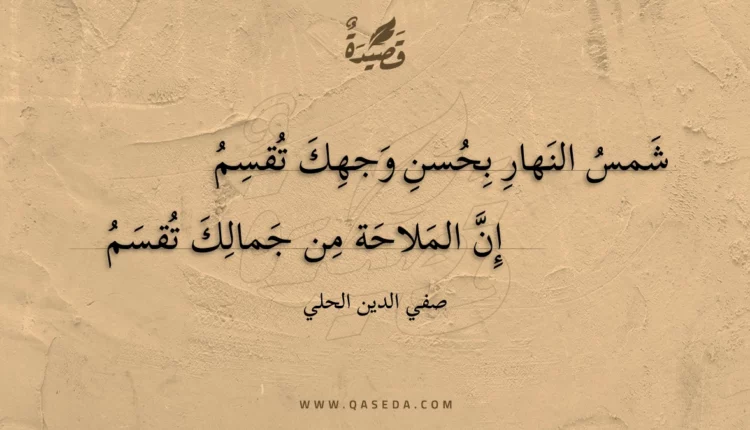 قَصِيدَةٌ
شَمسُ النَهارِ بِحُسنِ وَجهِكَ تُقسِمُ
إِنَّ المَلاحَة مِن جَمالِكَ تُقسَمُ
صفي الدين الحلي
WWW.QASEDA.COM